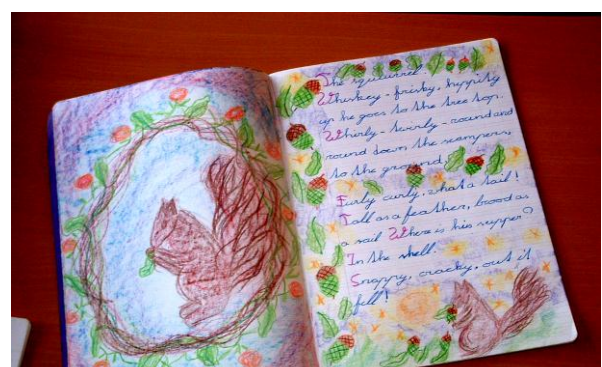 The squirrel.
Whiskey - frisky, hippity
up he goes to the tree top.
Whirly - twirly - round and
round down he scampers,
to the ground.
Furly curly, what a tail!
Tall as a feather, brood as
a sail Where is his supper?
In the shell.
Snappy, cracky, out it
fell!